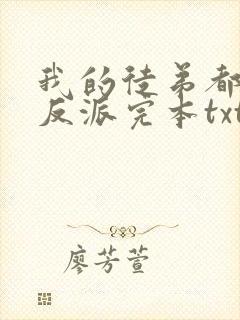 我的徒弟都
反派完本txt
廖芳萱